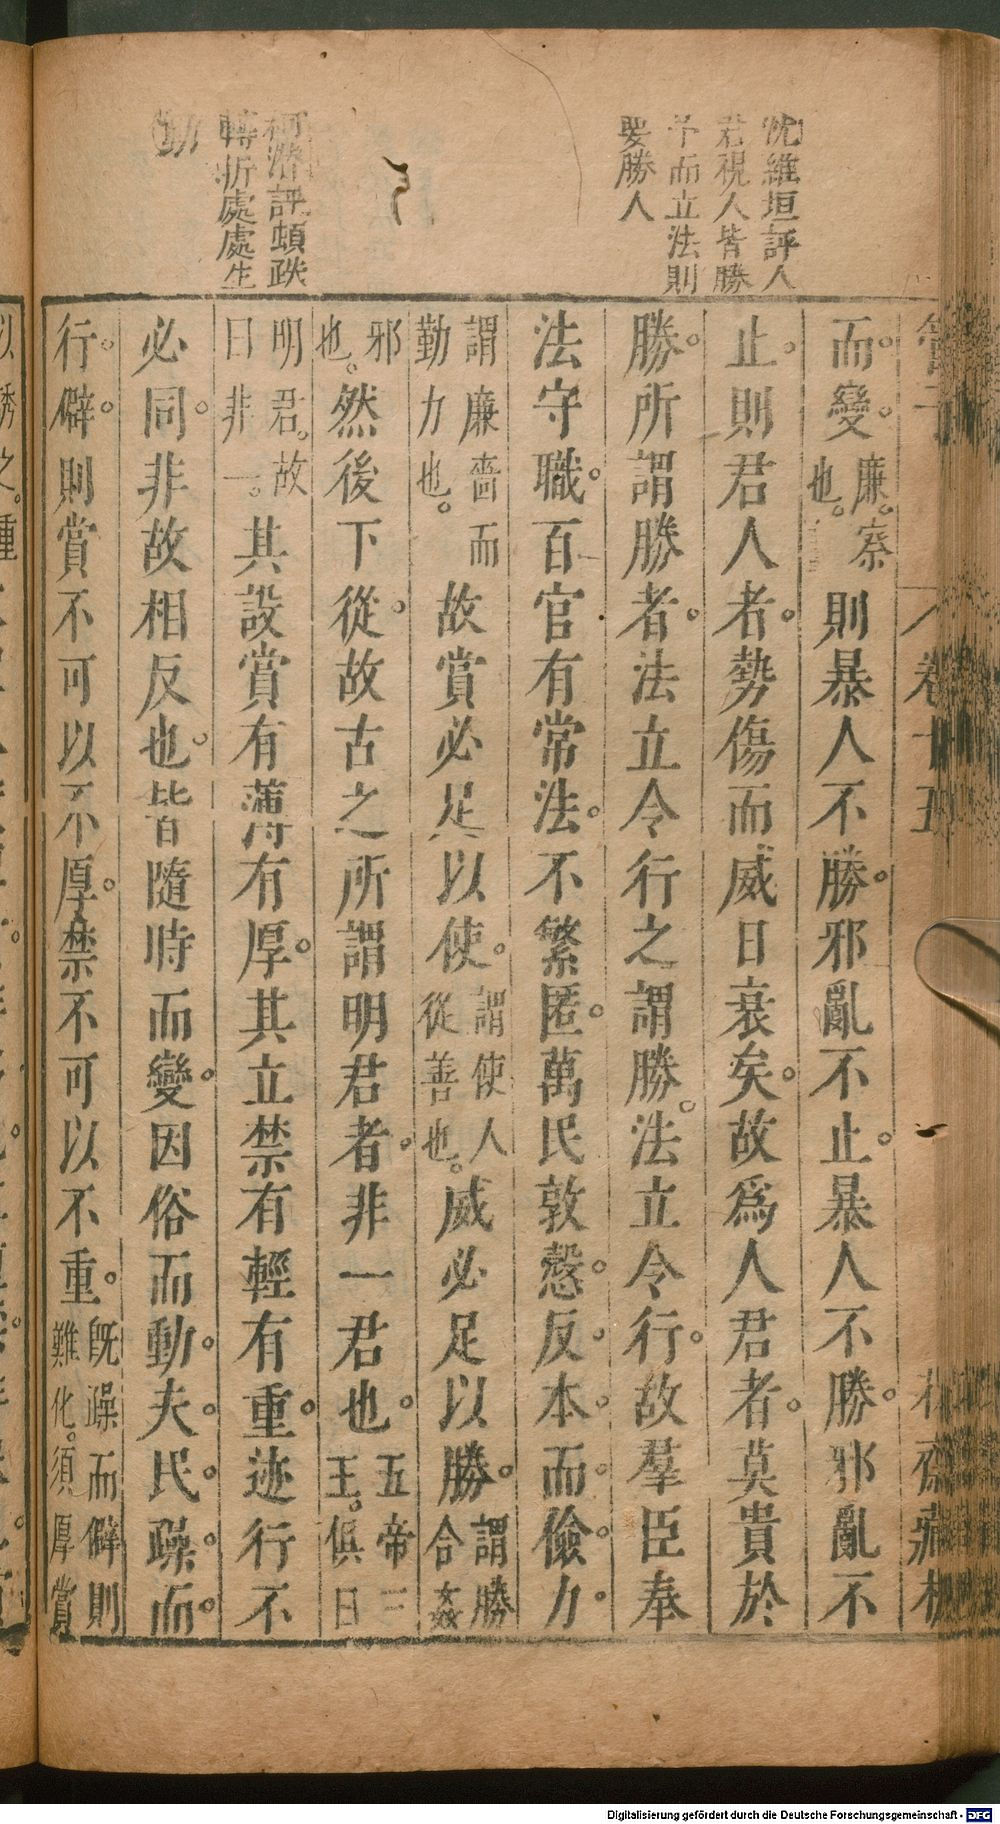 沈維垣評人
君視人皆勝
予而立法則
要勝人
柯潛評頓跌
轉折處處生
動
卷十五
而變廉察也則暴人不勝邪亂不止暴人不勝邪亂不
止則君人者勢傷而威日衰矣故爲人君者莫貴於
勝所謂勝者法立令行之謂勝法立令行故羣臣奉
法守職百官有常法不繁匿萬民敦愨反本而儉力
謂廉嗇而勤力也故賞必足以使謂使人從善也威必足以勝謂勝合姦
邪也然後下從故古之所謂明君者非一君也五帝三王俱曰
明君故曰非一其設賞有薄有厚其立禁有輕有重迹行不
必同非故相反也皆隨時而變因俗而動夫民躁而
行僻則賞不可以不厚禁不可以不重旣躁而僻則難化須厚賞
以誘之重
Digitalisierung gefördert durch die Deutsche Forschungsgemeinschaft - DFG